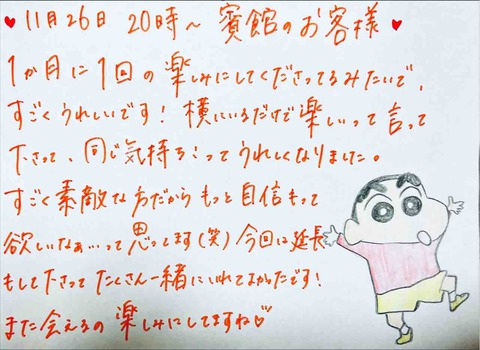 ♥11月26日 20時〜 賓館のお客様♥
1か月に1回の楽しみにしてくださってるみたいで、
すごくうれしいです！横にいるだけで楽しいって言って
下さって、同じ気持ち！ってうれしくなりました。
すごく素敵な方だからもっと自信もって
欲しいなぁ…って思ってます(笑)今回は延長
もして下さってたくさん一緒にいれてよかったです！
また会えるの楽しみにしてますね♡